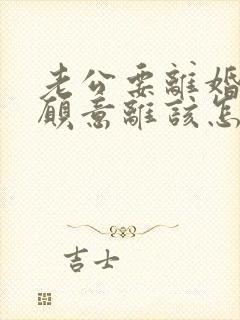 老公要離婚
願意離該怎
吉士